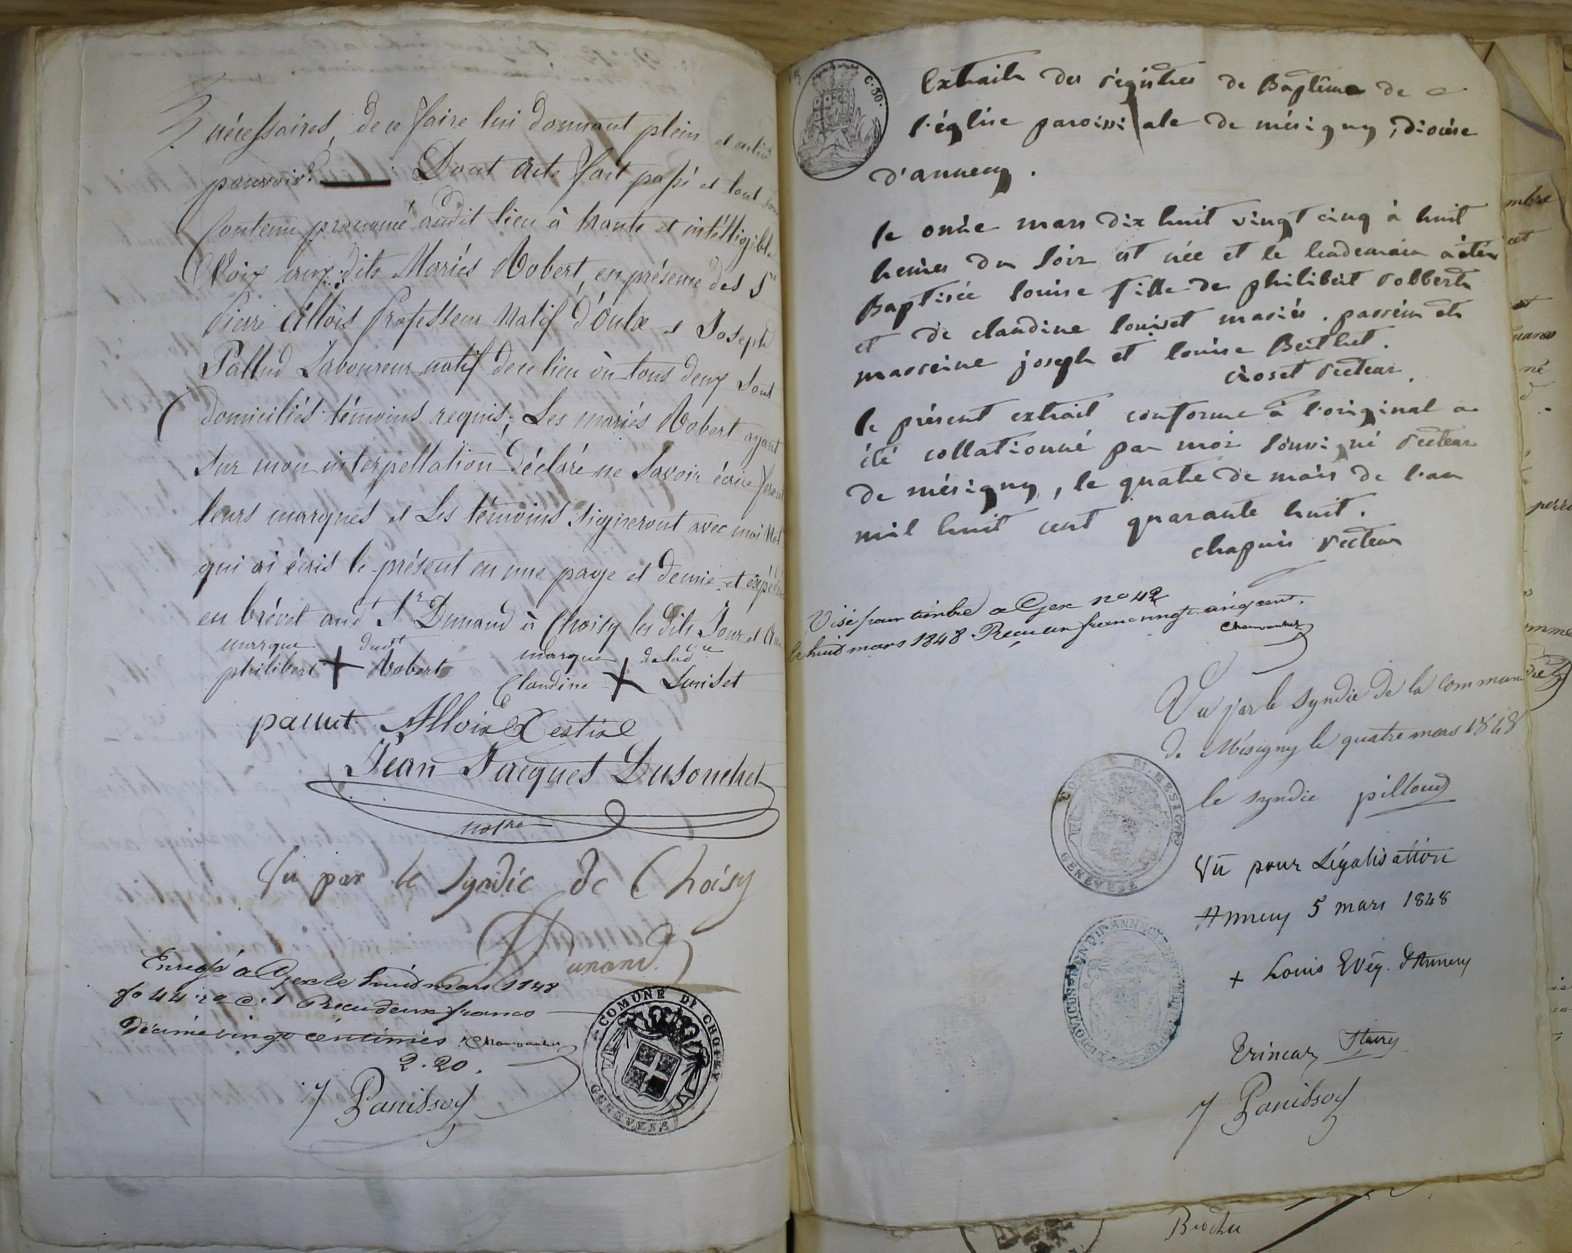 nécessaires, de ce faire lui donnant plein et entier
pouvoir. Dont acte fait passé et tout son
contenu prononcé audit lieu à haute et intelligible
voix aux dits Mariés Robert, en présence des Srs
Pierre Allois Professeur natif d'Oulx et Joseph
Pallud Laboureur natif de ce lieu où tous deux sont
domiciliés témoins requis; Les mariés Robert ayant
sur mon interpellation déclaré ne savoir écrire feront
leurs marques et Les témoins signeront avec moi Not
qui ai écris le présent en une page et demie et expédié
en brévet aud.t S.r Dunand à Choisy les dits Jour et An
marque dudt marque delad.te
philibert + Robert Clandine + Suriset
pallut Allois
Jean Jacques Dusouchet
not.re
Vu par le Syndic de Choisy
Dunand
Enregé a Gex le huid mars 1848
fo 44 ro c. 1 Recu deux francs
Décime vingt centimes
2.20.
COMUNE DI CHOISY
GENEVESE
C. 30.
Extrait des régistres de Baptême de
l'église paroissiale de mésigny, diocèse
d'annecy.
le onze mars dix huit vingt cinq à huit
heures du soir est née et le lendemain a été
Baptisée louise fille de philibert robbert
et de claudine louiset mariés. parrein et
marreine joseph et louise Berthet.
croset recteur.
le présent extrait conforme à l'original a
été collationné par moi soussigné recteur
de mésigny, le quatre de mars de l'an
mil huit cent quarante huit.
chapuis recteur
Visé pour timbre a Gex no 42
le huid mars 1848. Recu un franc vingt cinq cent.
Vu par le syndic de la commune
de Mésigny le quatre mars 1848
le syndic pilloud
COMUNE DI MESIGNY
GENEVESE
Vu pour Légalisation
Annecy 5 mars 1848
+ Louis Evêq. d'Annecy